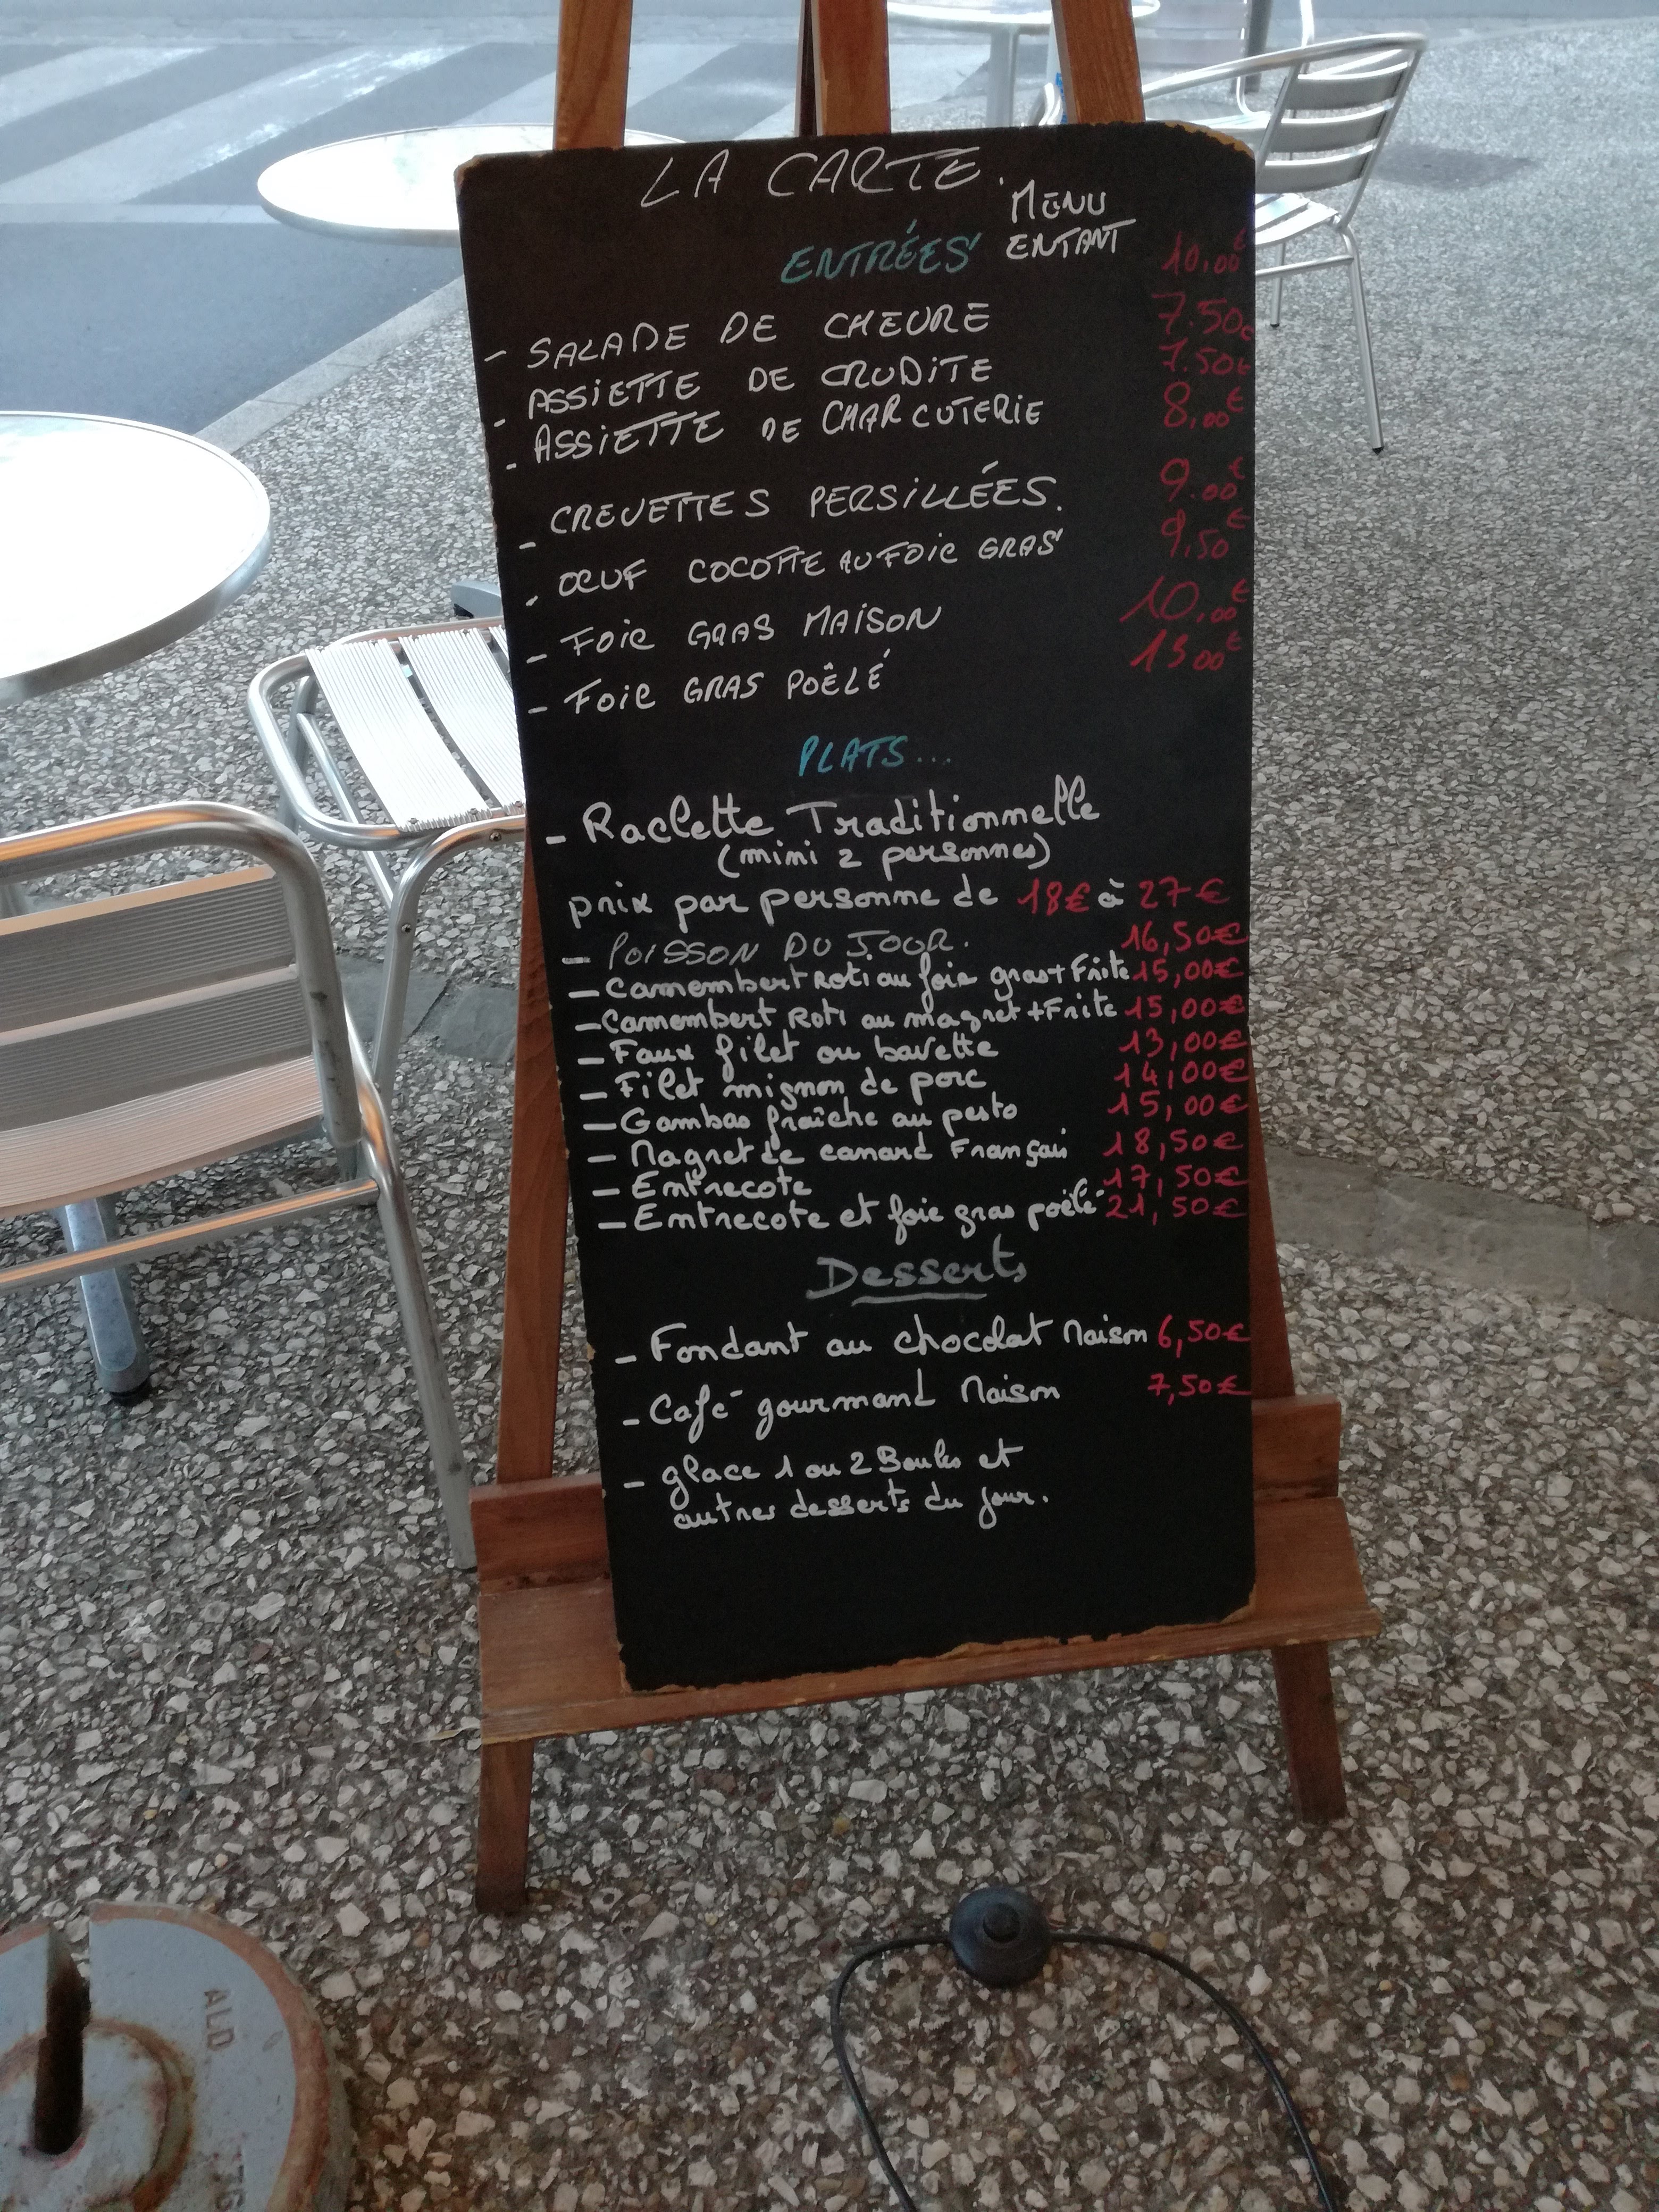 LA CARTE.
MENU
ENTANT 10,00€
ENTRÉES
- SALADE DE CHEVRE 7.50€
- ASSIETTE DE CRUDITE 7.50€
- ASSIETTE DE CHARCUTERIE 8,00€
- CREVETTES PERSILLÉES. 9.00€
- ŒUF COCOTTE AU FOIE GRAS 9,50€
- FOIE GRAS MAISON 10,00€
- FOIE GRAS POÊLÉ 13,00€
PLATS...
- Raclette Traditionnelle
(mini 2 personnes)
prix par personne de 18€ à 27€
- POISSON DU JOUR. 16,50€
- Camembert Roti au foie gras + Frite 15,00€
- Camembert Roti au magret + Frite 15,00€
- Faux filet ou bavette 13,00€
- Filet mignon de porc 14,00€
- Gambas fraîche au pesto 15,00€
- Magret de canard Français 18,50€
- Entrecote 17,50€
- Entrecote et foie gras poêlé 21,50€
Desserts
- Fondant au chocolat Maison 6,50€
- Café gourmand Maison 7,50€
- glace 1 ou 2 Boules et
autres desserts du jour.
ALD